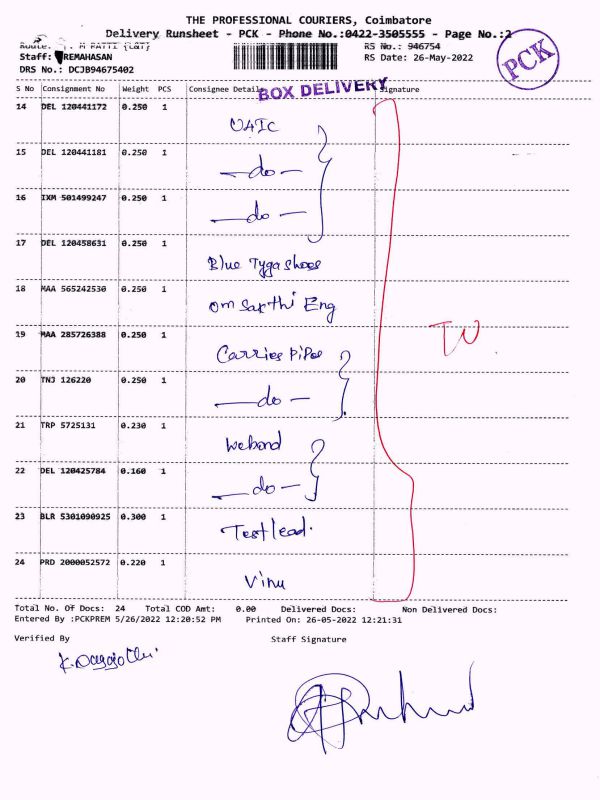 THE PROFESSIONAL COURIERS, Coimbatore
Delivery Runsheet - PCK - Phone No.:0422-3505555 - Page No.:2
RS No.: 946754
Staff: REMAHASAN
RS Date: 26-May-2022
DRS No.: DCJB94675402
PCK
S No Consignment No Weight PCS Consignee Details Signature
BOX DELIVERY
14 DEL 120441172 0.250 1 UAIC
15 DEL 120441181 0.250 1 —do—
16 IXM 501499247 0.250 1 —do—
17 DEL 120458631 0.250 1 Blue Tyga shoes
18 MAA 565242530 0.250 1 Om Sakthi Eng
19 MAA 285726388 0.250 1 Carries Pipes
20 TNJ 126220 0.250 1 —do—
21 TRP 5725131 0.230 1 Webond
22 DEL 120425784 0.160 1 —do—
23 BLR 5301090925 0.300 1 Testlead.
24 PRD 2000052572 0.220 1 Vinu
Total No. Of Docs: 24 Total COD Amt: 0.00 Delivered Docs: Non Delivered Docs:
Entered By :PCKPREM 5/26/2022 12:20:52 PM Printed On: 26-05-2022 12:21:31
Verified By Staff Signature